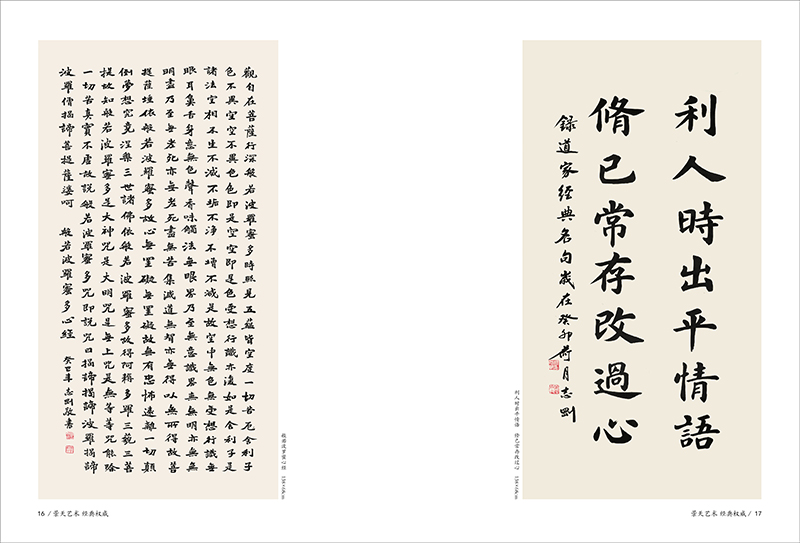 觀自在菩薩行深般若波羅蜜多時照見五蘊皆空度一切苦厄舍利子
色不異空空不異色色即是空空即是色受想行識亦復如是舍利子是
諸法空相不生不滅不垢不淨不增不減是故空中無色無受想行識無
眼耳鼻舌身意無色聲香味觸法無眼界乃至無意識界無無明亦無無
明盡乃至無老死亦無老死盡無苦集滅道無智亦無得以無所得故菩
提薩埵依般若波羅蜜多故心無罣礙無罣礙故無有恐怖遠離一切顛
倒夢想究竟涅槃三世諸佛依般若波羅蜜多故得阿耨多羅三藐三菩
提故知般若波羅蜜多是大神咒是大明咒是無上咒是無等等咒能除
一切苦真實不虛故說般若波羅蜜多咒即說咒曰揭諦揭諦波羅揭諦
波羅僧揭諦菩提薩婆呵 般若波羅蜜多心經 癸巳年 志剛敬書
般若波罗蜜心经 138×68cm
16 / 景天艺术 经典权威
利人時出平情語
脩已常存改過心
録道家經典名句歲在癸卯荷月志剛
利人时出平情语 修己常存改过心 138×68cm
景天艺术 经典权威 / 17